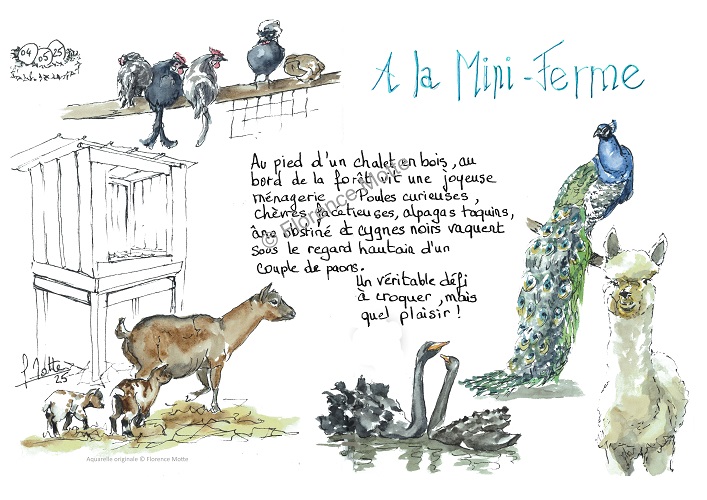 04 05 25
A la Mini-Ferme
Au pied d'un chalet en bois, au
bord de la forêt vit une joyeuse
ménagerie. Poules curieuses,
chèvres facétieuses, alpagas taquins,
âne obstiné et cygnes noirs vaquent
sous le regard hautain d'un
couple de paons.
Un véritable défi
à croquer, mais
quel plaisir !
© Florence Motte
F. Motte
25
Aquarelle originale © Florence Motte